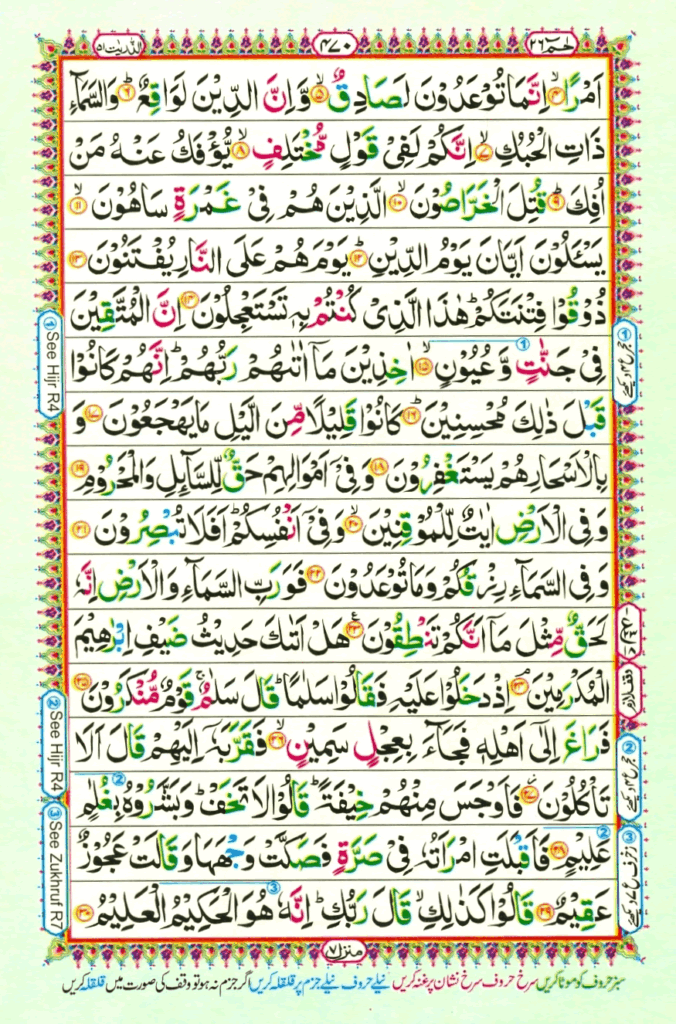 الذّٰریٰت ۵۱
۴۷۰
حٰمٓ ۲۶
اَمْرًا ۙ﴿۴﴾ اِنَّمَا تُوْعَدُوْنَ لَصَادِقٌ ۙ﴿۵﴾ وَّاِنَّ الدِّیْنَ لَوَاقِعٌ ؕ﴿۶﴾ وَالسَّمَآءِ
ذَاتِ الْحُبُكِ ۙ﴿۷﴾ اِنَّكُمْ لَفِیْ قَوْلٍ مُّخْتَلِفٍ ۙ﴿۸﴾ یُّؤْفَكُ عَنْهُ مَنْ
اُفِكَ ؕ﴿۹﴾ قُتِلَ الْخَرّٰصُوْنَ ۙ﴿۱۰﴾ الَّذِیْنَ هُمْ فِیْ غَمْرَةٍ سَاهُوْنَ ۙ﴿۱۱﴾
یَسْـَٔلُوْنَ اَیَّانَ یَوْمُ الدِّیْنِ ؕ﴿۱۲﴾ یَوْمَ هُمْ عَلَی النَّارِ یُفْتَنُوْنَ ﴿۱۳﴾
ذُوْقُوْا فِتْنَتَكُمْ ؕ هٰذَا الَّذِیْ كُنْتُمْ بِهٖ تَسْتَعْجِلُوْنَ ﴿۱۴﴾ اِنَّ الْمُتَّقِیْنَ
فِیْ جَنّٰتٍ وَّعُیُوْنٍ ۙ﴿۱۵﴾ اٰخِذِیْنَ مَاۤ اٰتٰىهُمْ رَبُّهُمْ ؕ اِنَّهُمْ كَانُوْا
قَبْلَ ذٰلِكَ مُحْسِنِیْنَ ؕ﴿۱۶﴾ كَانُوْا قَلِیْلًا مِّنَ الَّیْلِ مَا یَهْجَعُوْنَ ﴿۱۷﴾ وَ
بِالْاَسْحَارِ هُمْ یَسْتَغْفِرُوْنَ ﴿۱۸﴾ وَفِیْۤ اَمْوَالِهِمْ حَقٌّ لِّلسَّآىِٕلِ وَالْمَحْرُوْمِ ﴿۱۹﴾
وَفِی الْاَرْضِ اٰیٰتٌ لِّلْمُوْقِنِیْنَ ۙ﴿۲۰﴾ وَفِیْۤ اَنْفُسِكُمْ ؕ اَفَلَا تُبْصِرُوْنَ ﴿۲۱﴾
وَفِی السَّمَآءِ رِزْقُكُمْ وَمَا تُوْعَدُوْنَ ﴿۲۲﴾ فَوَرَبِّ السَّمَآءِ وَالْاَرْضِ اِنَّهٗ
لَحَقٌّ مِّثْلَ مَاۤ اَنَّكُمْ تَنْطِقُوْنَ ﴿۲۳﴾ هَلْ اَتٰىكَ حَدِیْثُ ضَیْفِ اِبْرٰهِیْمَ
الْمُكْرَمِیْنَ ﴿۲۴﴾ اِذْ دَخَلُوْا عَلَیْهِ فَقَالُوْا سَلٰمًا ؕ قَالَ سَلٰمٌ ۚ قَوْمٌ مُّنْكَرُوْنَ ﴿۲۵﴾
فَرَاغَ اِلٰۤی اَهْلِهٖ فَجَآءَ بِعِجْلٍ سَمِیْنٍ ۙ﴿۲۶﴾ فَقَرَّبَهٗۤ اِلَیْهِمْ قَالَ اَلَا
تَاْكُلُوْنَ ﴿۲۷﴾ فَاَوْجَسَ مِنْهُمْ خِیْفَةً ؕ قَالُوْا لَا تَخَفْ ؕ وَبَشَّرُوْهُ بِغُلٰمٍ
عَلِیْمٍ ﴿۲۸﴾ فَاَقْبَلَتِ امْرَاَتُهٗ فِیْ صَرَّةٍ فَصَكَّتْ وَجْهَهَا وَقَالَتْ عَجُوْزٌ
عَقِیْمٌ ﴿۲۹﴾ قَالُوْا كَذٰلِكِ ۙ قَالَ رَبُّكِ ؕ اِنَّهٗ هُوَ الْحَكِیْمُ الْعَلِیْمُ ﴿۳۰﴾
① See Hijr R4
② See Hijr R4
③ See Zukhruf R7
وقف لازم
منزل ۷
سبز حروف کو موٹا کریں سرخ حروف سرخ نشان پر غنہ کریں نیلے حروف نیلے جزم پر قلقلہ کریں اگر جزم نہ ہو تو وقف کی صورت میں قلقلہ کریں